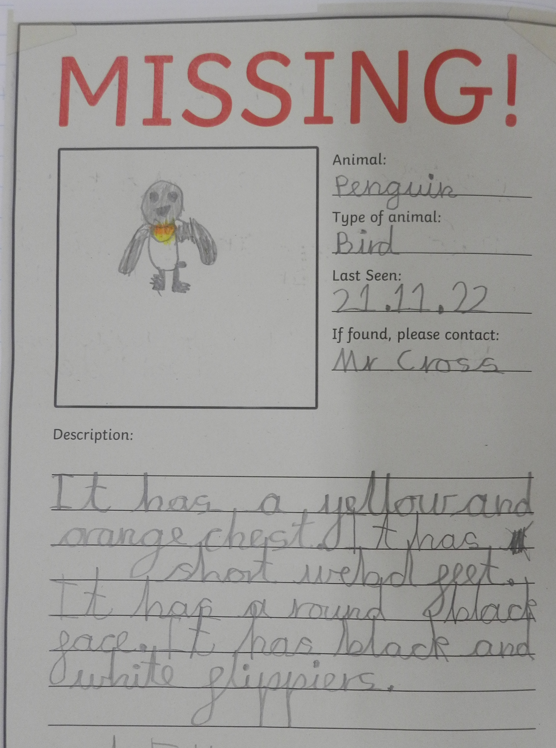 MISSING!
Animal:
Penguin
Type of animal:
Bird
Last Seen:
21.11.22
If found, please contact:
Mr Cross
Description:
It has a yellow and
orange chest. It has
short webd feet.
It has a round black
face. It has black and
white flippiers.